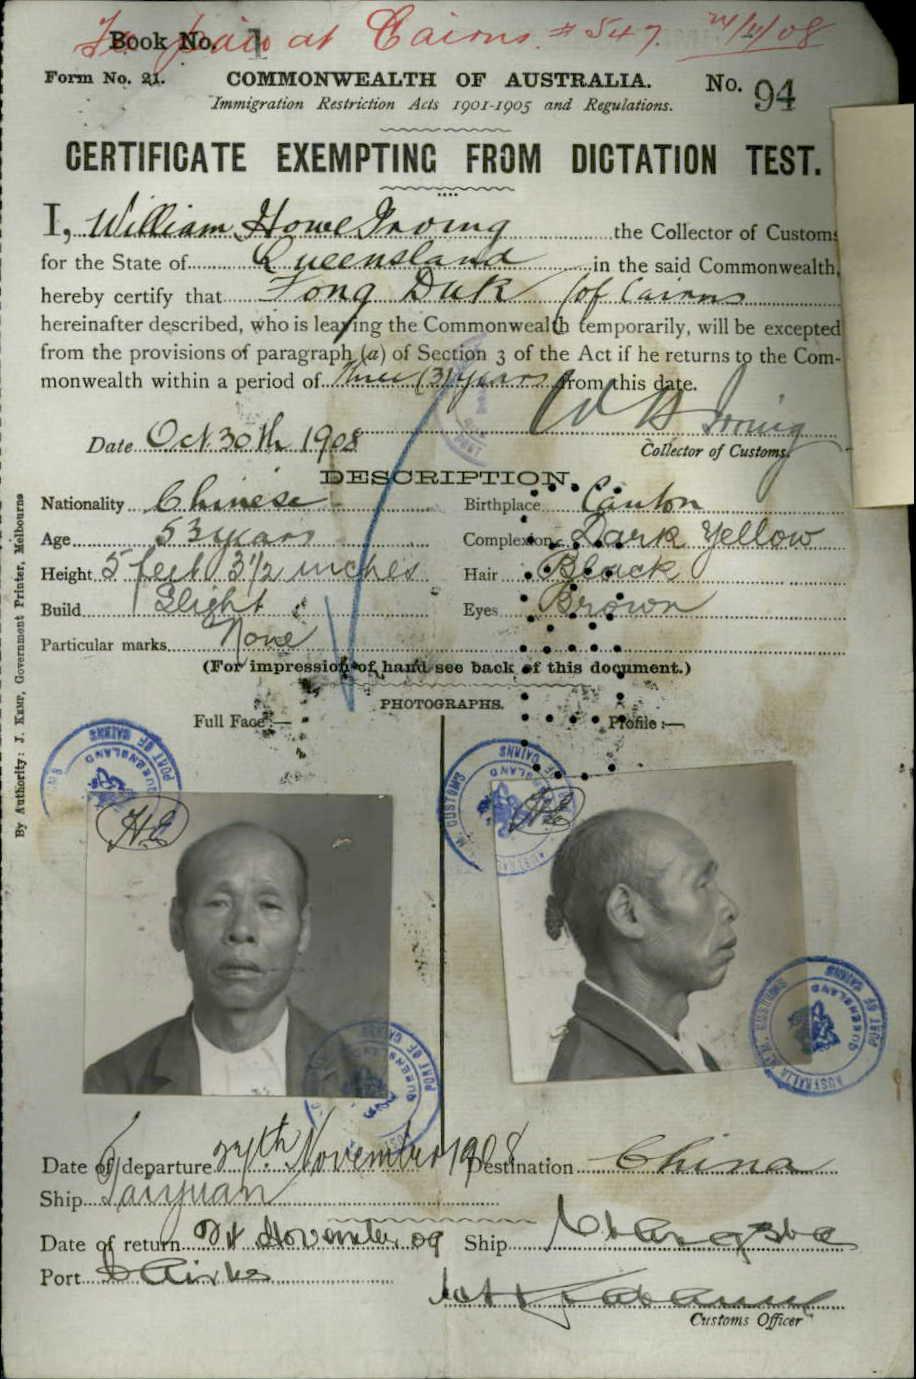 Book No. 1
Fee paid at Cairns # 547. 24/11/08
Form No. 21.
COMMONWEALTH OF AUSTRALIA.
No. 94
Immigration Restriction Acts 1901-1905 and Regulations.
CERTIFICATE EXEMPTING FROM DICTATION TEST.
I, William Howe Irving the Collector of Customs
for the State of Queensland in the said Commonwealth,
hereby certify that Fong Duk (of Cairns
hereinafter described, who is leaving the Commonwealth temporarily, will be excepted
from the provisions of paragraph (a) of Section 3 of the Act if he returns to the Com-
monwealth within a period of three (3) years from this date.
W H Irving
Date Oct. 30th 1908
Collector of Customs.
DESCRIPTION.
Nationality Chinese Birthplace Canton
Age 53 years Complexion Dark Yellow
Height 5 feet 3 1/2 inches Hair Black
Build Slight Eyes Brown
Particular marks None
(For impression of hand see back of this document.)
PHOTOGRAPHS.
Full Face:— Profile:—
By Authority: J. KEMP, Government Printer, Melbourne
PORT OF CAIRNS
QUEENSLAND
H.M. CUSTOMS
PORT OF CAIRNS
QUEENSLAND
AUSTRALIA
PORT OF CAIRNS
QUEENSLAND
H.M. CUSTOMS
PORT OF CAIRNS
QUEENSLAND
AUSTRALIA
Date of departure 24th November 1908 Destination China
Ship Taiyuan
Date of return November 09 Ship Changsha
Port Cairns
Customs Officer